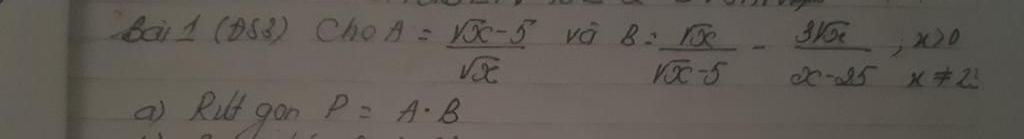 Bài 1 (ĐS8) Cho A = (√x - 5)/√x và B = √x/(√x - 5) - 3√x/(x - 25) ; x > 0 x ≠ 25
a) Rút gọn P = A · B